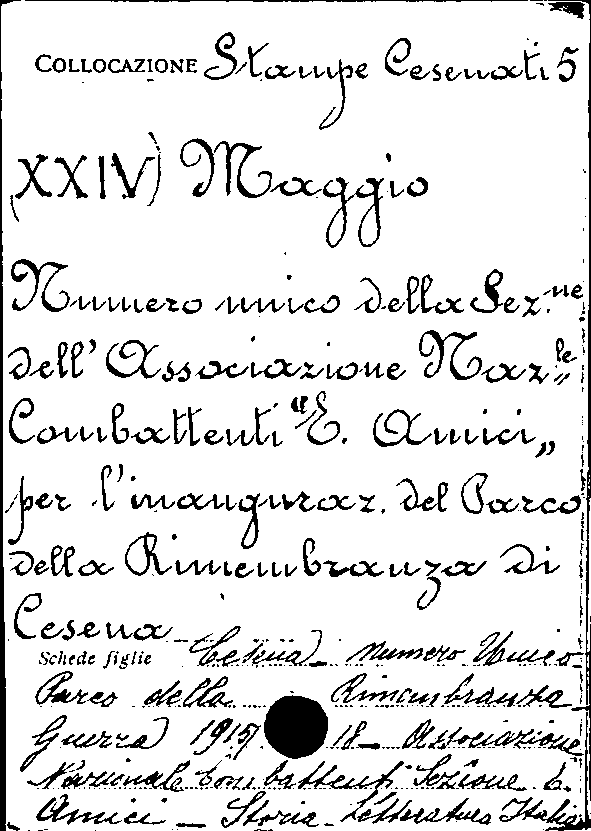 COLLOCAZIONE Stampe Cesenati 5
(XXIV) Maggio
Numero unico della Sez.ne
dell'Associazione Naz.le
Combattenti "E. Amici"
per l'inauguraz. del Parco
della Rimembranza di
Cesena
Schede figlie Cesena - Numero Unico
Parco della Rimembranza -
Guerra 1915 18 - Associazione
Nazionale Combattenti Sezione E.
Amici - Storia - Letteratura Italia